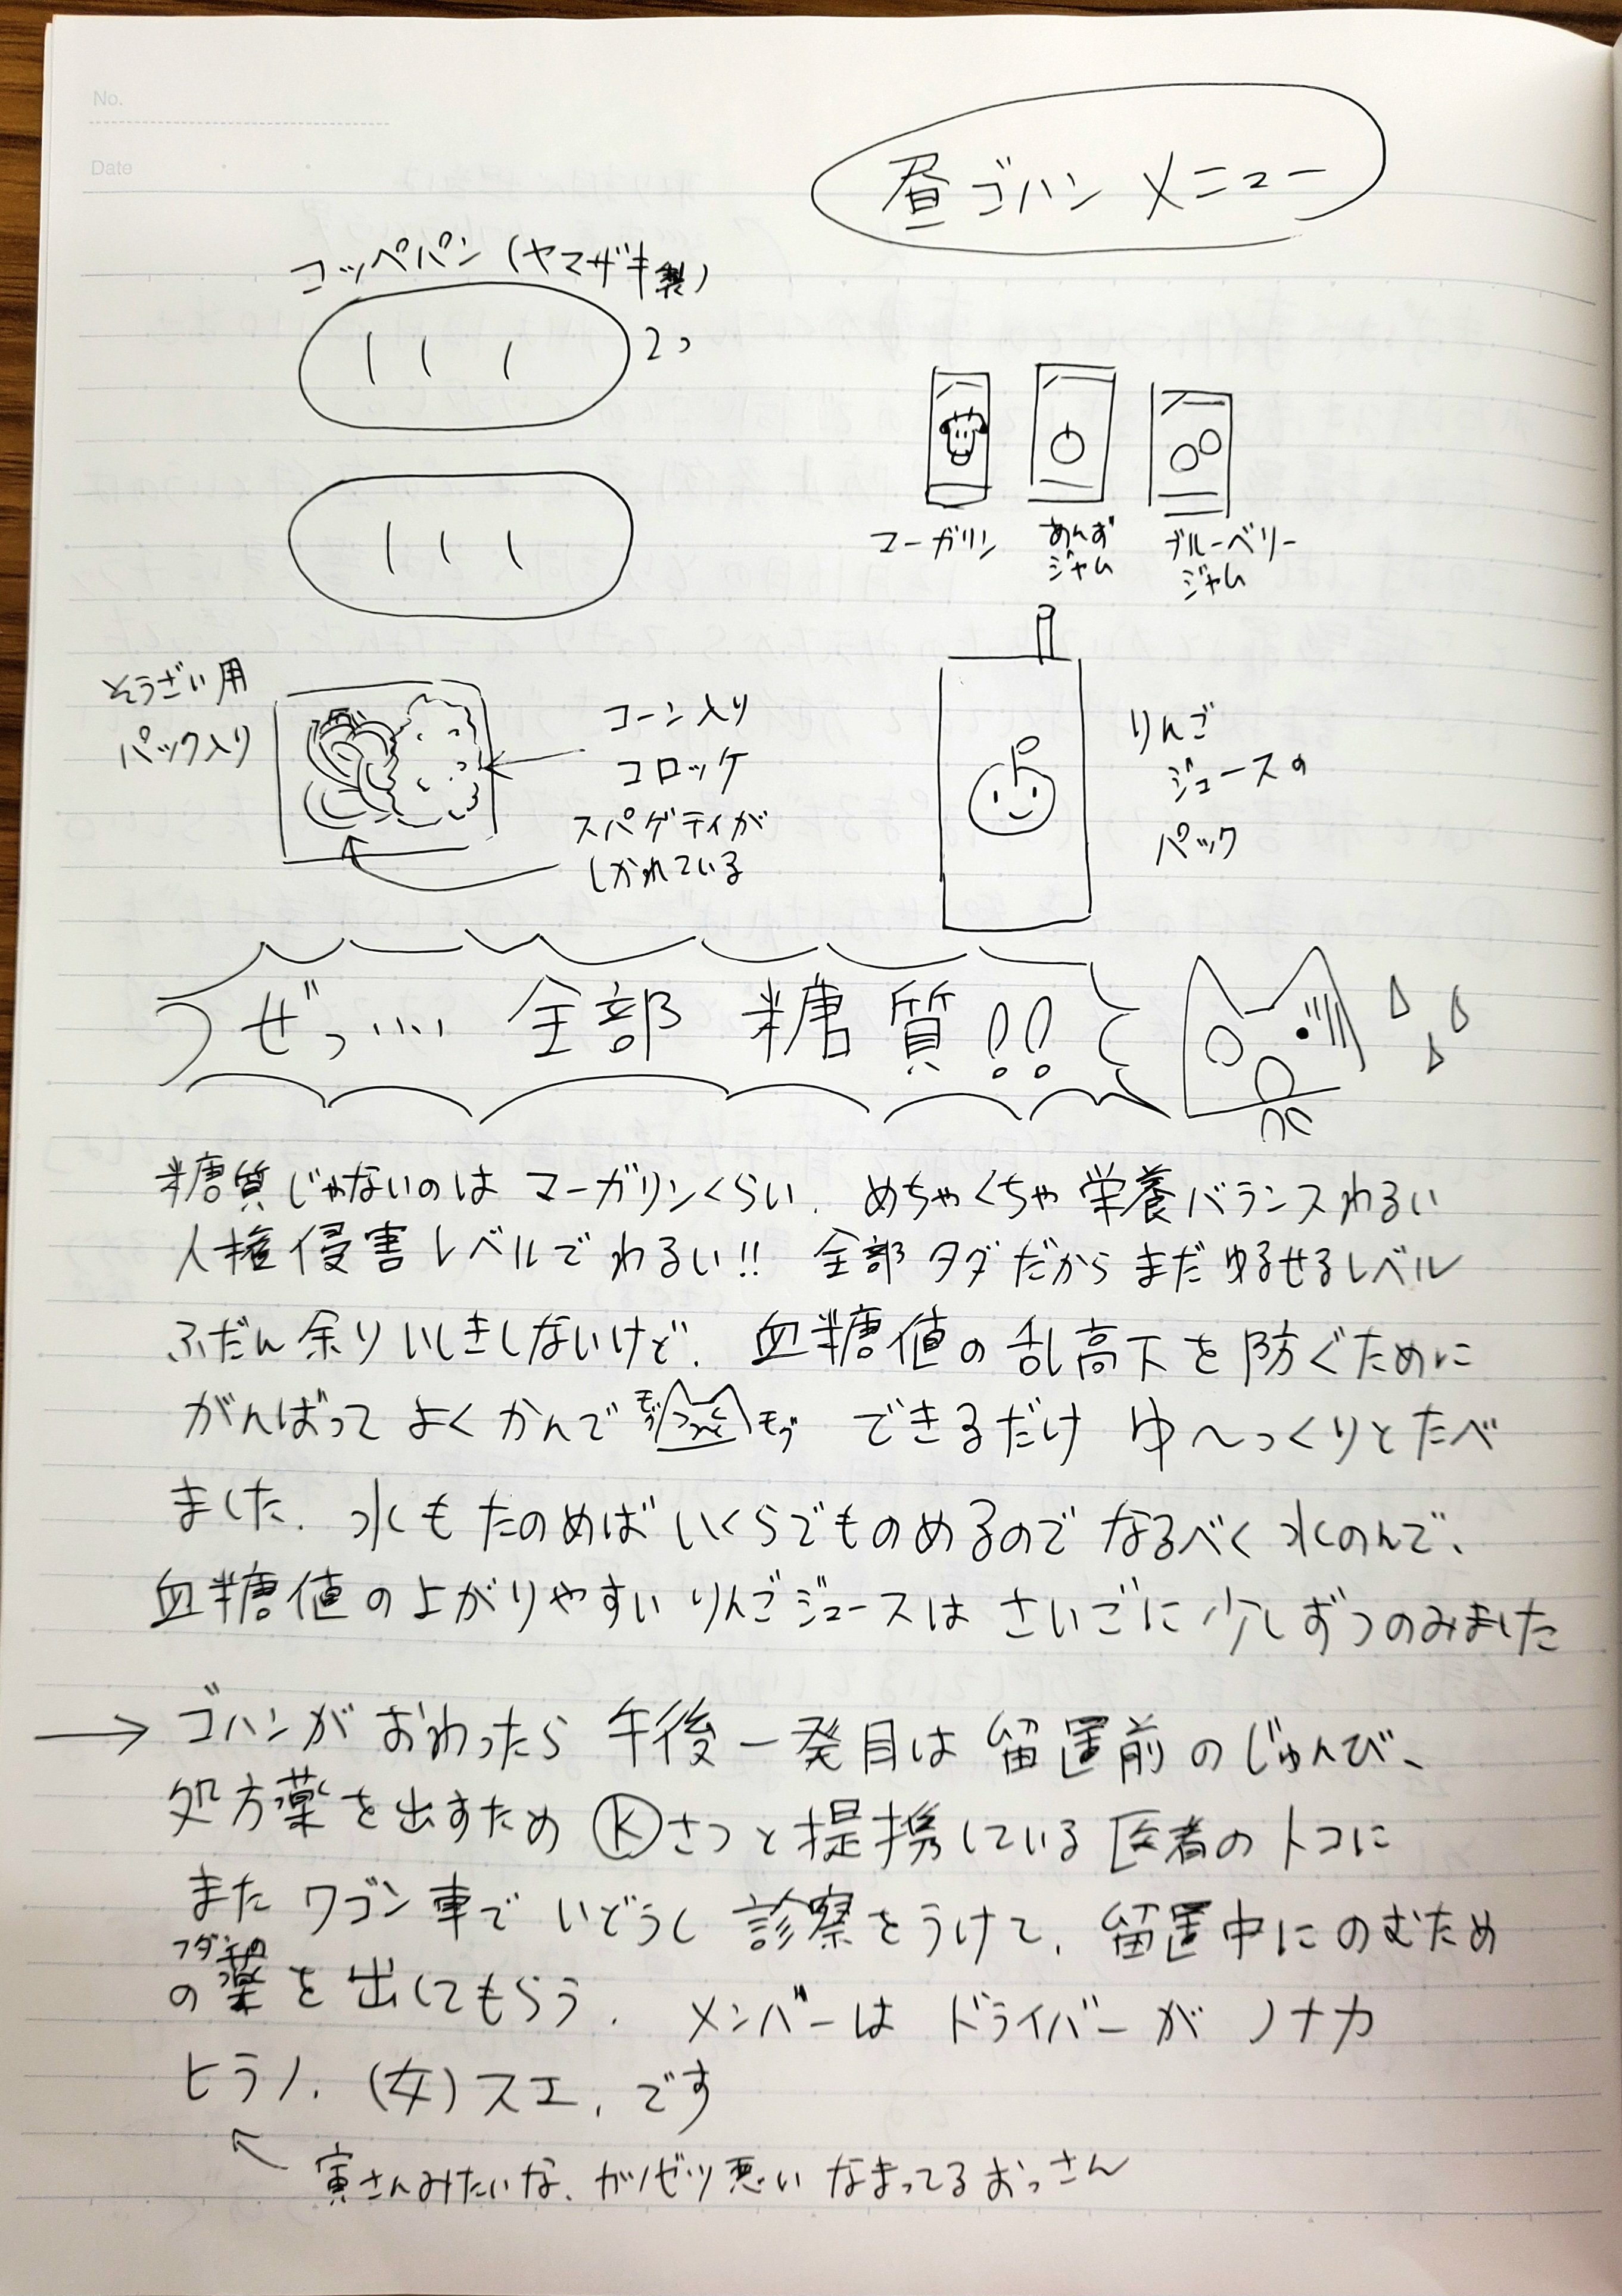 No.
Date
昼ゴハン メニュー
コッペパン (ヤマザキ製)
2つ
マーガリン
あんず
ジャム
ブルーベリー
ジャム
そうざい用
パック入り
コーン入り
コロッケ
スパゲティが
しかれている
りんご
ジュースの
パック
ぜっ‥‥ 全部 糖質!!
糖質じゃないのは マーガリンくらい. めちゃくちゃ栄養バランスわるい
人権侵害レベルでわるい!! 全部タダだからまだゆるせるレベル
ふだん余りいしきしないけど、血糖値の乱高下を防ぐために
がんばって よくかんで モグ モグ できるだけ ゆ〜っくりとたべ
ました. 水もたのめばいくらでものめるので なるべく水のんで、
血糖値の上がりやすいりんごジュースは さいごに少しずつのみました
→ ゴハンがおわったら 午後一発目は 留置前のじゅんび、
処方薬を出すため Ⓚさつと提携している 医者のトコに
また ワゴン車で いどうし 診察をうけて、留置中にのむため
フダンの
の薬を出してもらう. メンバーは ドライバーが ノナカ
ヒラノ、(女)スエ、です
寅さんみたいな、ガラ悪い なまってるおっさん